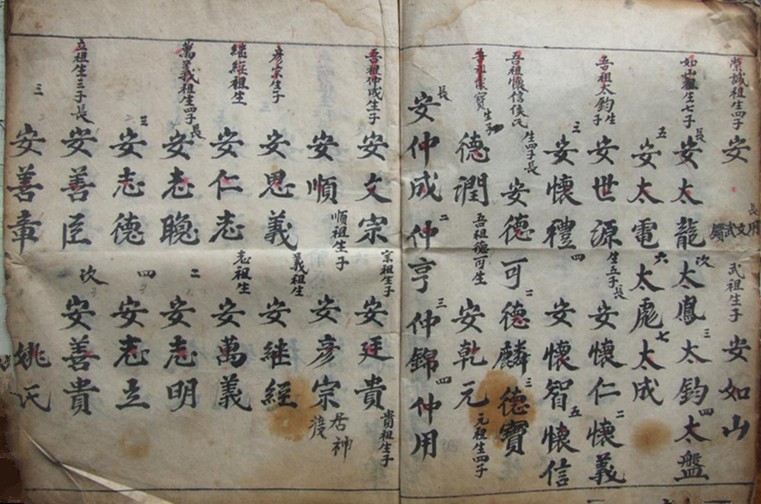 榮誠祖生四子 安
長用文武賢
武祖生子 安如山
如山祖生七子 長安太龍 次太鳳 三太鈞 四太盤
五安太電 六太彪 七太成
吾祖太鈞生子 安世源 生五子長 安懷仁 二懷義
三安懷禮 四安懷智 五懷信
吾祖懷信侯氏生四子長 安德可 二德麟 三德寶
四德潤 吾祖德可生 安乾元 元祖生四子
長安仲成 二仲亨 三仲錦 四仲用
吾祖仲成生子 安文宗 宗祖生子 安廷貴 貴祖生子
安順 順祖生子 安彥宗
彥宗生子 安思義 義祖生 安継經
継經祖生 安仁志 志祖生 安萬義
萬義祖生四子 長安志聰 二安志明
三安志德 四安志立
立祖生三子長 安善臣 次安善貴
三安善章 姚氏